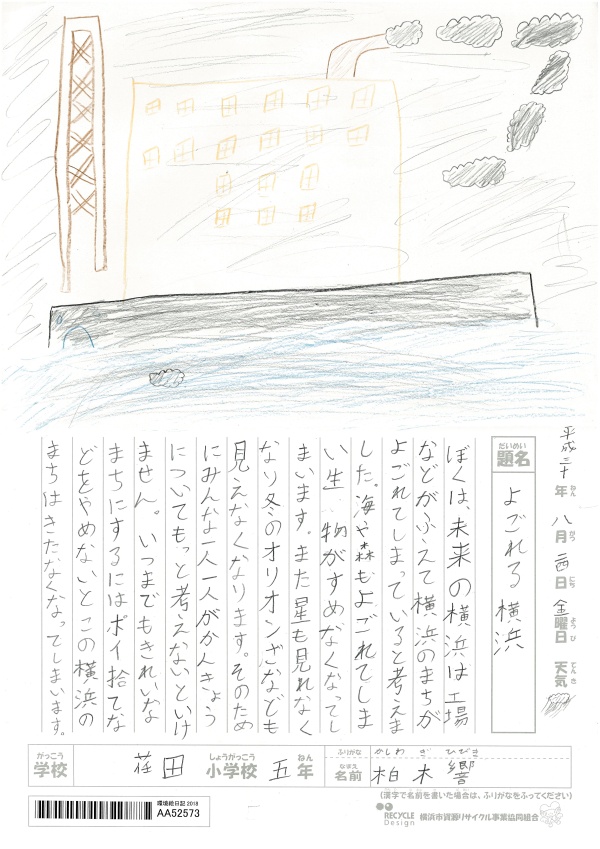 平成三十年八月二四日金曜日 天気
ねん がつ にち ようび てんき
だいめい
題名 よごれる横浜
ぼくは、未来の横浜は工場
などがふえて横浜のまちが
よごれてしまっていると考えま
した。海や森もよごれてしま
い生物がすめなくなってし
まいます。また星も見れなく
なり冬のオリオンざなども
見えなくなります。そのため
にみんな一人一人がかんきょう
についてもっと考えないといけ
ません。いつまでもきれいな
まちにするにはポイ捨てな
どをやめないとこの横浜の
まちはきたなくなってしまいます。
がっこう しょうがっこう ねん ふりがな かしわ ぎ ひびき
学校 荏田 小学校 五年 なまえ 名前 柏木響
(漢字で名前を書いた場合は、ふりがなをふってください)
環境絵日記2018
AA52573
RECYCLE Design 横浜市資源リサイクル事業協同組合